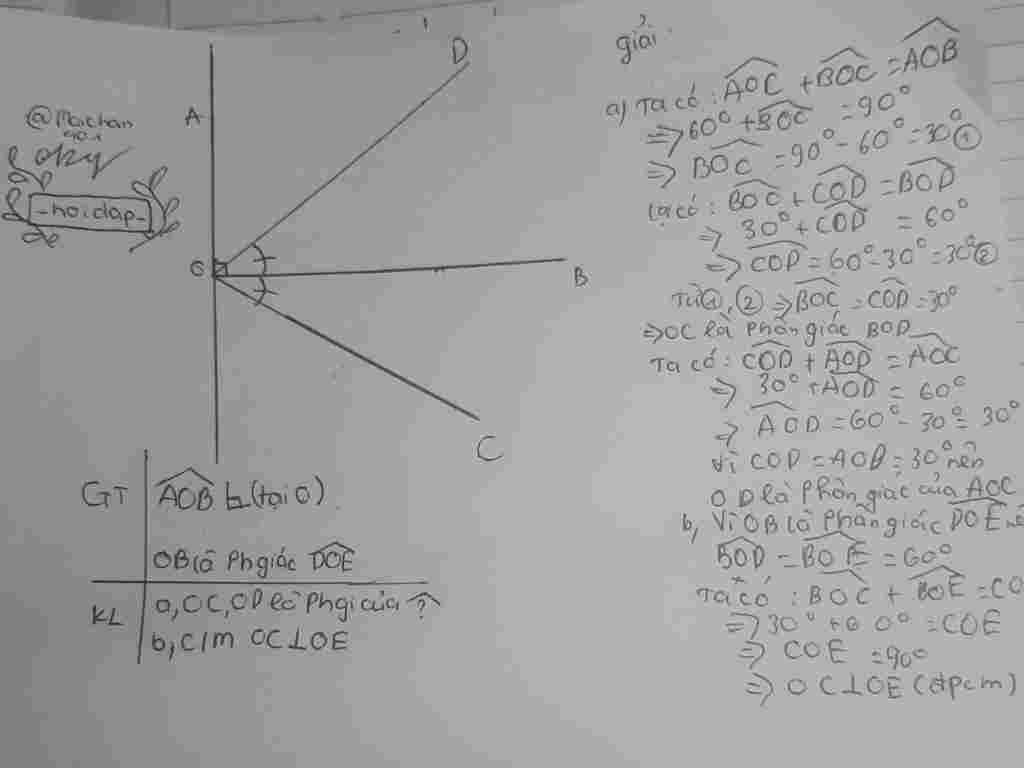 D
A
B
C
@Maichan
oky
-hoidap-
GT AOB ⊾(tại O)
OB là phgiác DOE
KL a, OC, OD là phgi của ?
b, C/m OC⊥OE
giải
a) Ta có: AOC + BOC = AOB
=> 60° + BOC = 90°
=> BOC = 90° - 60° = 30° ①
ta có: BOC + COD = BOD
=> 30° + COD = 60°
=> COD = 60° - 30° = 30° ②
Từ ①, ② => BOC = COD = 30°
=> OC là phân giác BOD
Ta có: COD + AOD = AOC
=> 30° + AOD = 60°
=> AOD = 60° - 30 = 30°
Vì COD = AOD = 30° nên
OD là phân giác của AOC
b, Vì OB là phân giác DOE nê
BOD = BOE = 60°
Ta có: BOC + BOE = CO
=> 30° + 60° = COE
=> COE = 90°
=> OC⊥OE (đpcm)